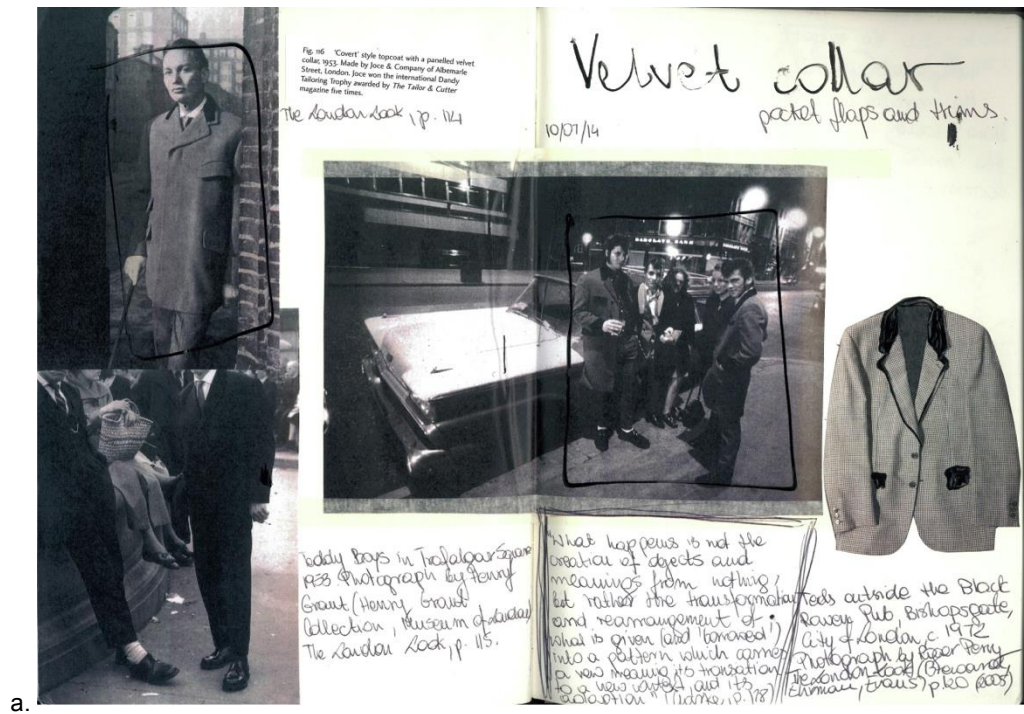 Fig. 116 'Covert' style topcoat with a panelled velvet
collar, 1953. Made by Joce & Company of Albemarle
Street, London. Joce won the international Dandy
Tailoring Trophy awarded by The Tailor & Cutter
magazine five times.
The London Look, p. 114
Velvet collar
pocket flaps and trims.
10/07/14
BARCLAYS BANK
Teddy Boys in Trafalgar Square
1953 Photograph by Henry
Grant (Henry Grant
Collection, Museum of London)
The London Look, p. 115.
"What happens is not the
creation of objects and
meanings from nothing,
but rather the transformation
and rearrangement of
what is given (and 'borrowed')
into a pattern which carries
a new meaning, its translation
to a new context, and its
adaption" (Clarke, p. 178)
Teds outside the Black
Raven Pub, Bishopsgate,
City of London, c. 1972
Photograph by Roger Perry
The London Look (Breward,
Ehrman, Evans) p. 120 (2005)
a.